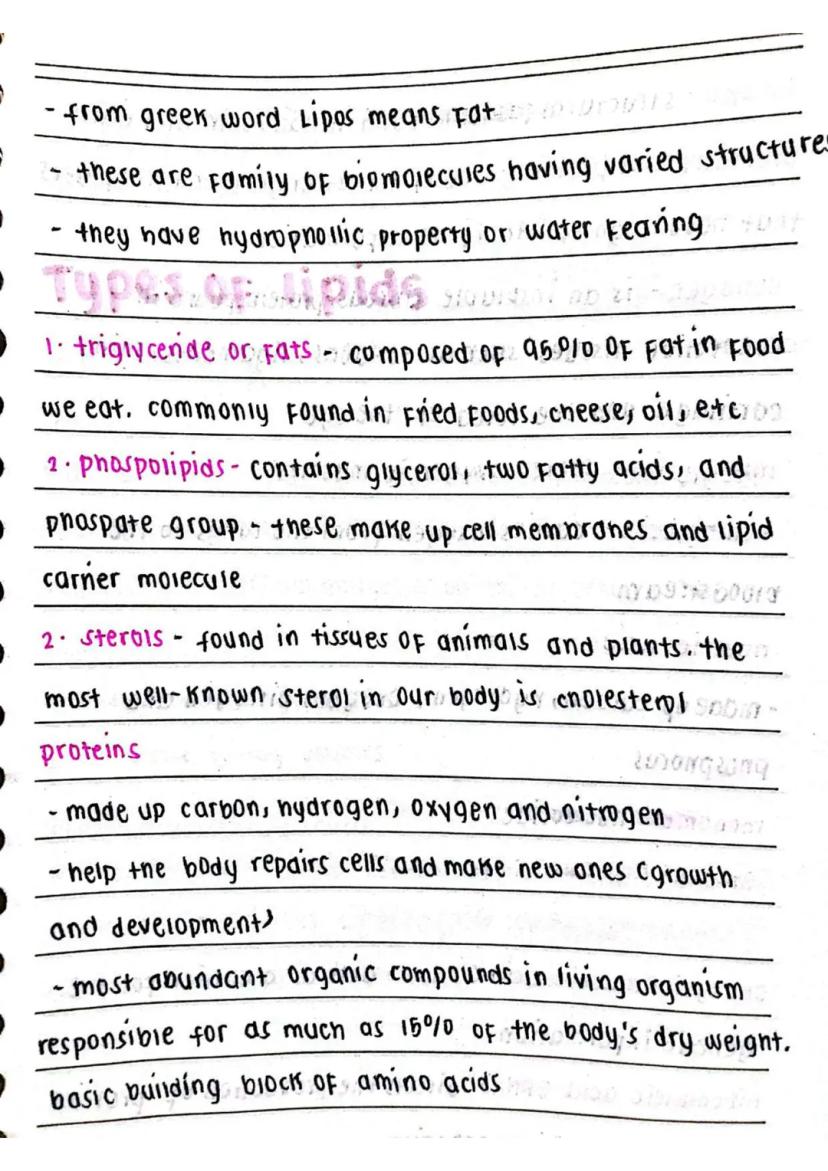 - from greek word Lipos means Fat
- these are Family of biomolecules having varied structures
- they have hydrophollic property or water Fearing
Types of lipids
1. triglyceride or Fats - composed of 95% OF Fat in Food
we eat. commonly Found in Fried Foods, cheese, oil, etc.
2. phospolipids - contains glycerol, two Fatty acids, and
phospate group - these make up cell membranes and lipid
carrier molecule
2. sterols - found in tissues OF animals and plants the
most well-known sterol in our body is cholesterol
proteins
- made up carbon, hydrogen, oxygen and nitrogen
- help the body repairs cells and make new ones (growth
and development)
- most abundant organic compounds in living organism
responsible for as much as 15% of the body's dry weight.
basic building block OF amino acids